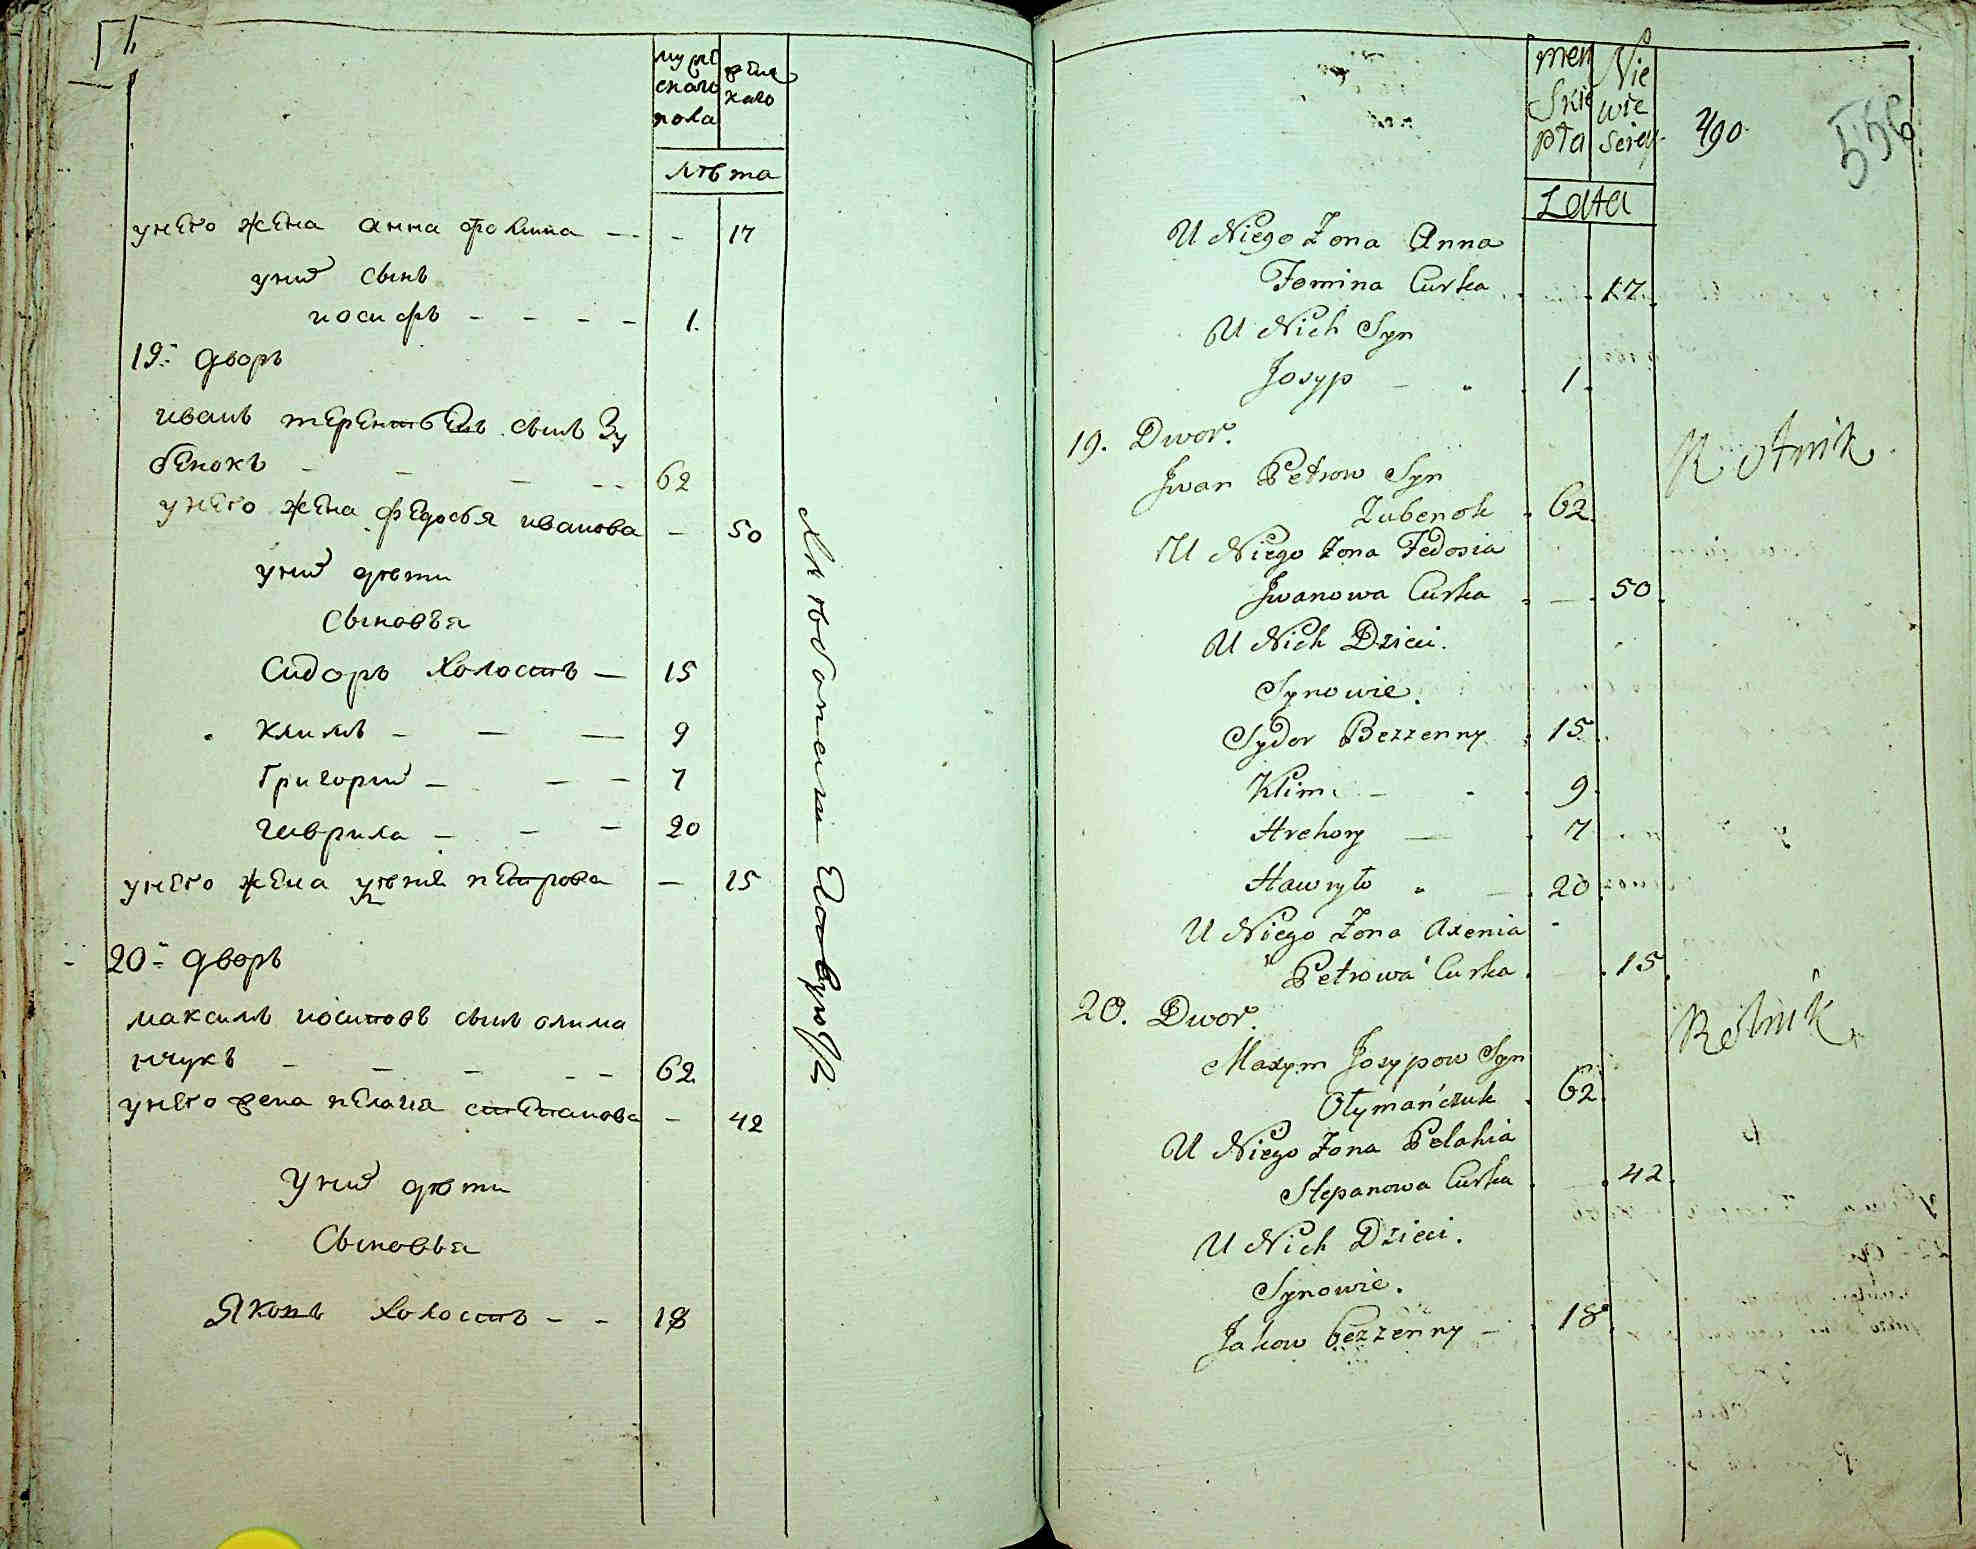 мужескаго пола
женскаго
лѣта
у него жена анна фомина - - - 17
у них сынъ
иосифъ - - - - 1.
19й дворъ
иванъ терентьевъ сынъ Зу
бенокъ - - - - - 62
у него жена федосья иванова - 50
у них дѣти
Сыновья
Сидоръ холостъ - 15
климъ - - - 9
Григорий - - - 7
гаврила - - - 20
у него жена петрова - 15
20й дворъ
максимъ иосиповъ сынъ олима
нчукъ - - - - - 62
у него жена пелагия степанова - 42
у них дѣти
Сыновья
Яковъ холостъ - - 18
menskie pła
Niewiesciey
Lata
490
556
U Niego Zona Anna
Fomina Curka . - . 17.
U Nich Syn
Josyp - . 1.
19. Dwor. Rolnik
Jwan Petrow Syn
Zubenok . 62.
U Niego Zona Fedosia
Jwanowa Curka . - . 50.
U Nich Dzieci.
Synowie.
Sydor Bezzenny . 15.
Klim - . 9.
Hrehory - . 7
Hawryło - . 20
U Niego Zona Axenia -
Petrowa Curka . - . 15.
20. Dwor. Rolnik
Maxym Josypow Syn
Ołymańczuk . 62.
U Niego Zona Pelahia
Stepanowa Curka . - . 42.
U Nich Dzieci.
Synowie.
Jakow bezzenny - . 18.